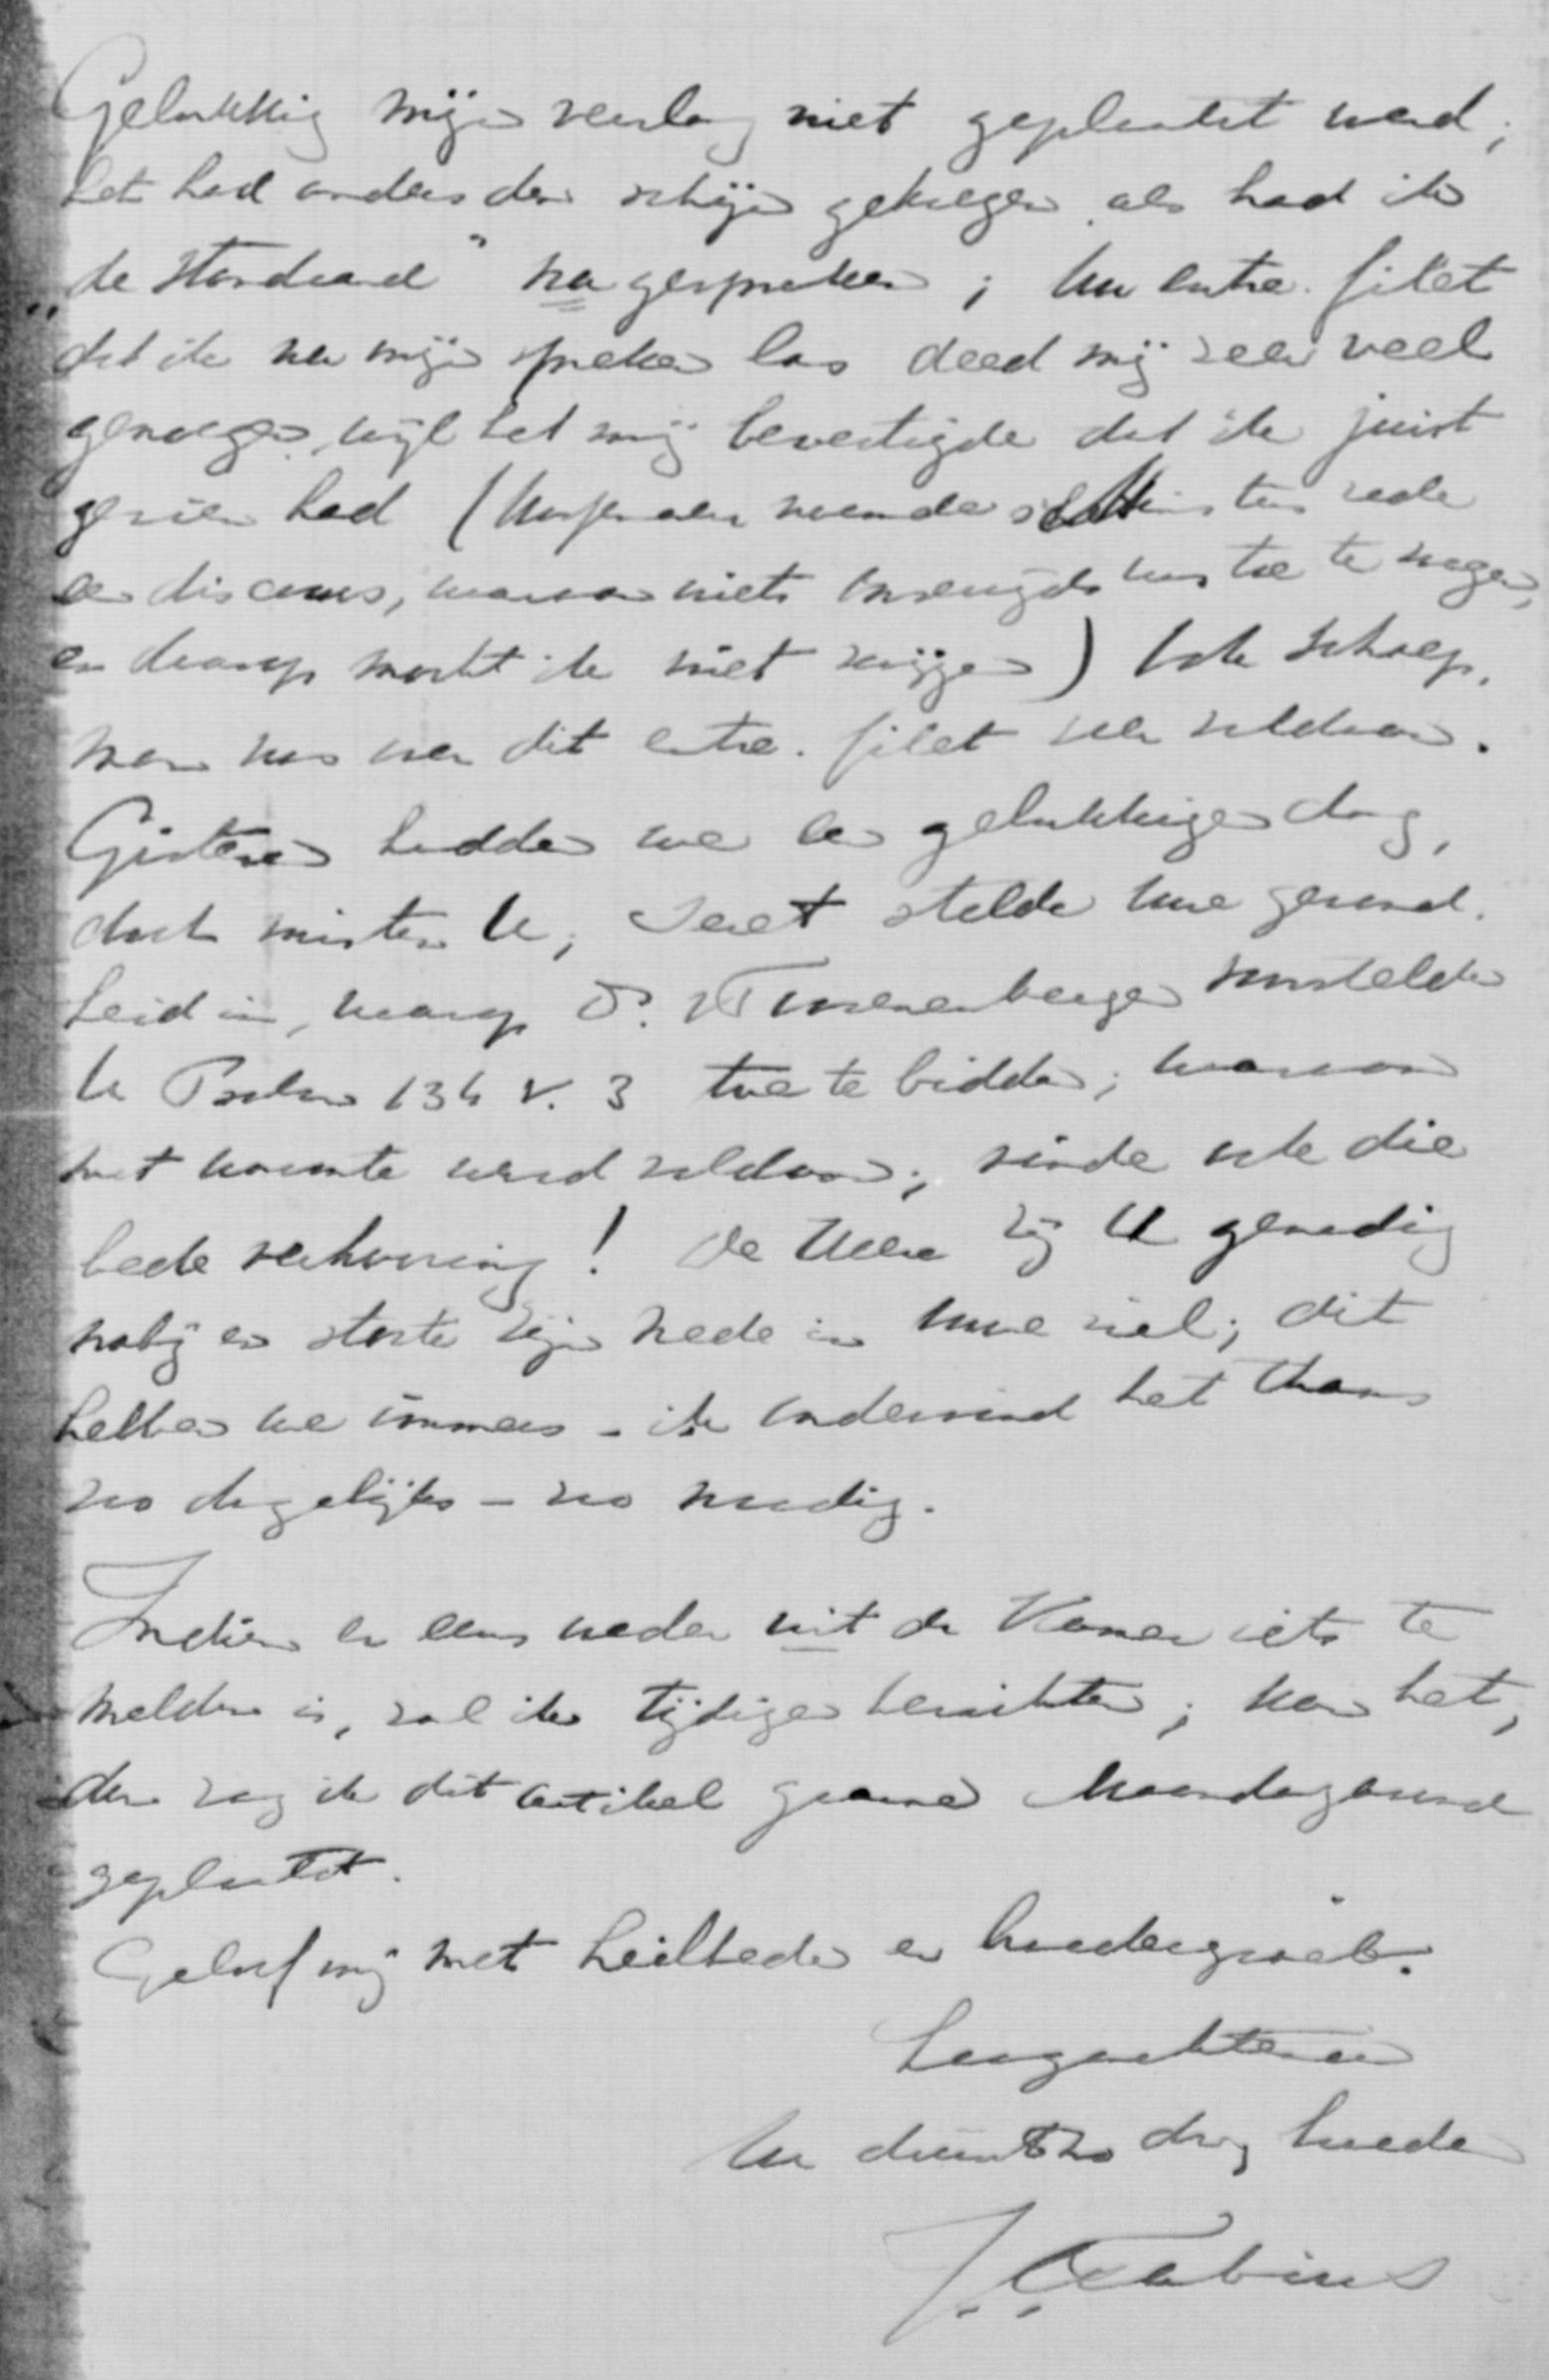 Gelukkig mijn verslag niet geplaatst werd;
het had anders den schijn gekregen als had ik
„de Standaard" nagesproken; Uw entre-filet
dat ik na mijn spreken las deed mij zeer veel
genoegen, wijl het mij bevestigde dat ik juist
gezien had ( noemde rede
een discours, waarvan niets was toe te
en daarop mocht ik niet zwijgen) Ook Schaep-
man was over dit entre-filet zeer voldaan.
Gisteren hadden we een gelukkigen dag,
doch misten U; Seret stelde uwe gezond-
heid in, waarop Ds. v Ronkenberger voorstelde
U Psalm 134 v. 3 toe te bidden; waaraan
met warmte werd voldaan; vinde ook die
bede verhooring! De Heere zij U genadig
nabij en storte Zijn vrede in Uwe ziel; dit
hebben we immers – ik ondervind het thans
zoo dagelijks – zoo noodig.
Indien er eens weder uit de Kamer iets te
melden is, zal ik tijdiger berichten; kan het,
dan zag ik dit artikel gaarne Maandagavond
geplaatst.
Geloof mij met heilbede en broedergroet.
Hoogachtend
Uw dienstw dr, broeder
J. C. Fabius